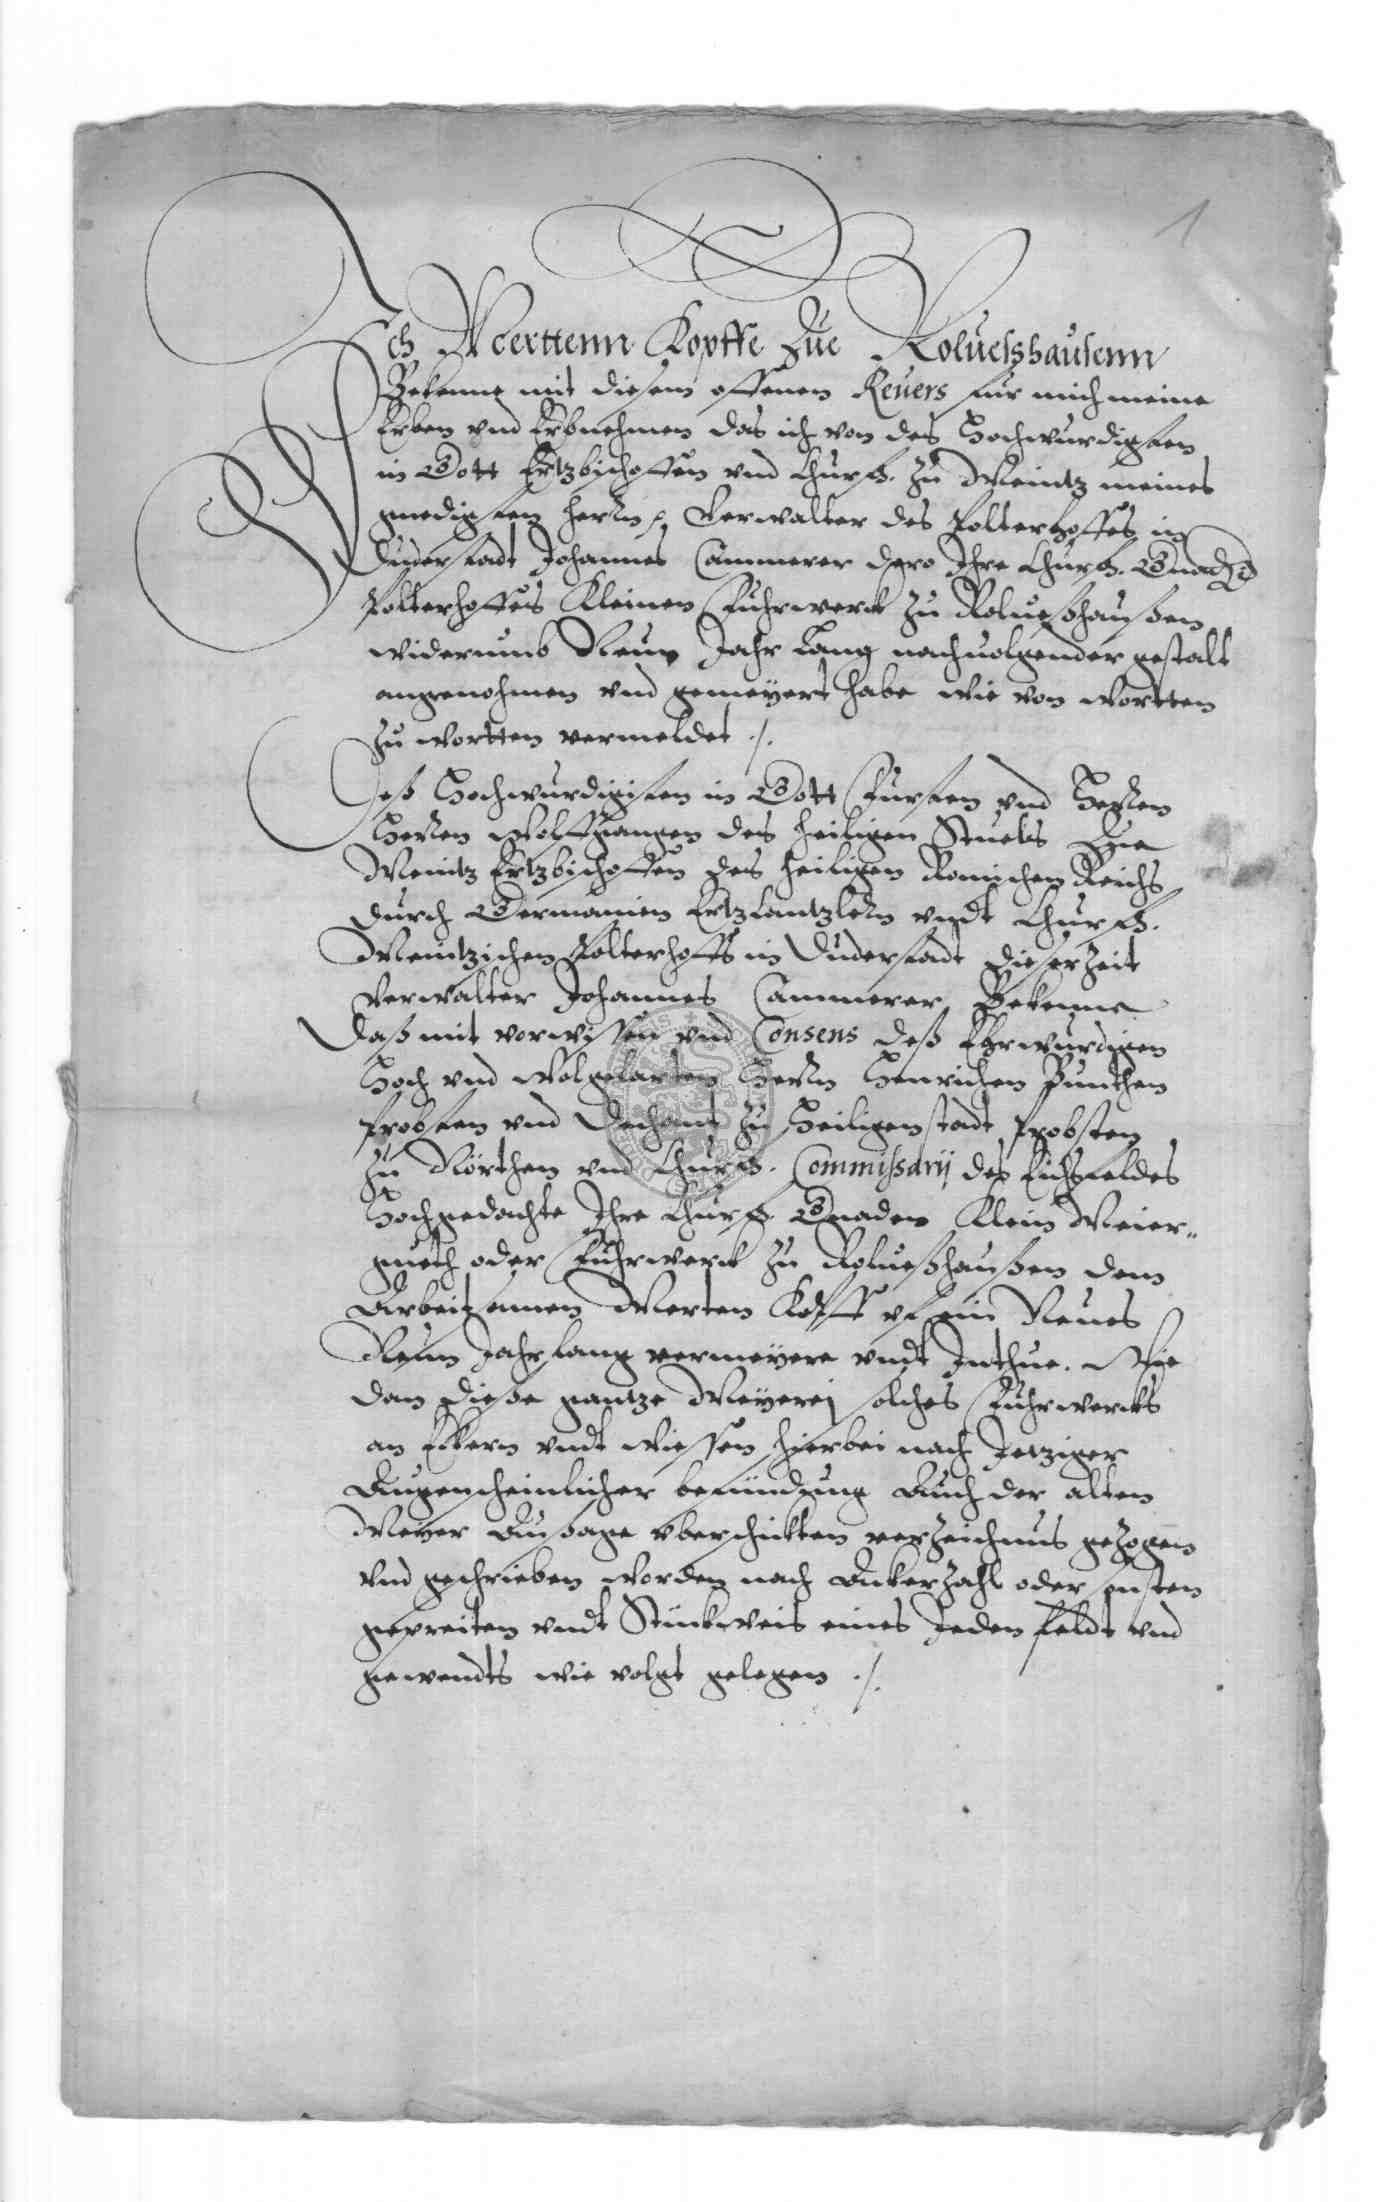 1
Ich Merttenn Kopffe Zue Roluesshausenn
Bekenne mit diesem offenen Reuers fur mich meine
Erben vnd Erbnehmen das ich von des Hochwurdigsten
in Gott Ertzbischoffen vnd Churf. zu Meintz meines
gnedigsten herrn Verwalter des Polterhoffes in
Duderstadt Johannes Cammerer dero Ihre Churf. Gnaden
Polterhoffes Kleinen Fuhrwerck zu Rolueßhaußen
widerumb Neun Jahr Lang nachuolgender gestalt
angenohmen vnd gemeyert habe wie von wortten
zu wortten vermeldet ./.
Deß Hochwurdigisten in Gott Fursten vnd Herren
Herren Wolffgangen des heiligen Stuels Zue
Meintz Ertzbischoffen des heiligen Romichen Reichs
durch Germanien Ertzcantzlern vndt Churf.
Meintzischen Polterhoffs in Duderstadt dieserzeit
Verwalter Johannes Cammerer Bekenne
Daß mit vorwissen vnd Consens deß Ehrwurdigen
Hoch vnd Wolgelarten Herrn Henrichen Bunthen
Probsten vnd Dechant zu Heiligenstadt Probsten
zu Nörthen vnd Churf. Commissarij des Eichsfeldes
Hochgedachte Ihre Churf. Gnaden Klein Meier„
gueth oder Fuhrwerck zu Rolueßhaußen dem
Arbeitsamen Merten Kopff vf ein Neues
Neun Jahr lang vermeyere vndt Inthue. Wie
dan diese gantze Meyerej solches Fuhrwercks
an Eckern vndt Wiessen hierbei nach Jetziger
Augenscheinlicher befindung Auch der alten
Meyer Aussage vberschickten verzeichnus gezogen
vnd geschrieben worden nach Ackerzahl oder sonsten
gepreiten vndt Stückweis eines Jeden feldt vnd
gewendts wie volgt gelegen ./.